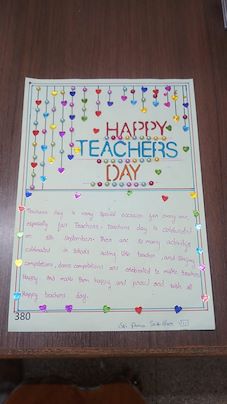 HAPPY
TEACHERS
DAY
Teachers day is very special occasion for every one,
especially for Teachers, teachers day is celebrated
on 5th September. There are so many activitys
celebrated in schools acting like teacher, and singing
competitions, dance competitions are celebrated to make teachers
Happy and make them happy and proud and wish all
Happy teachers day.
380